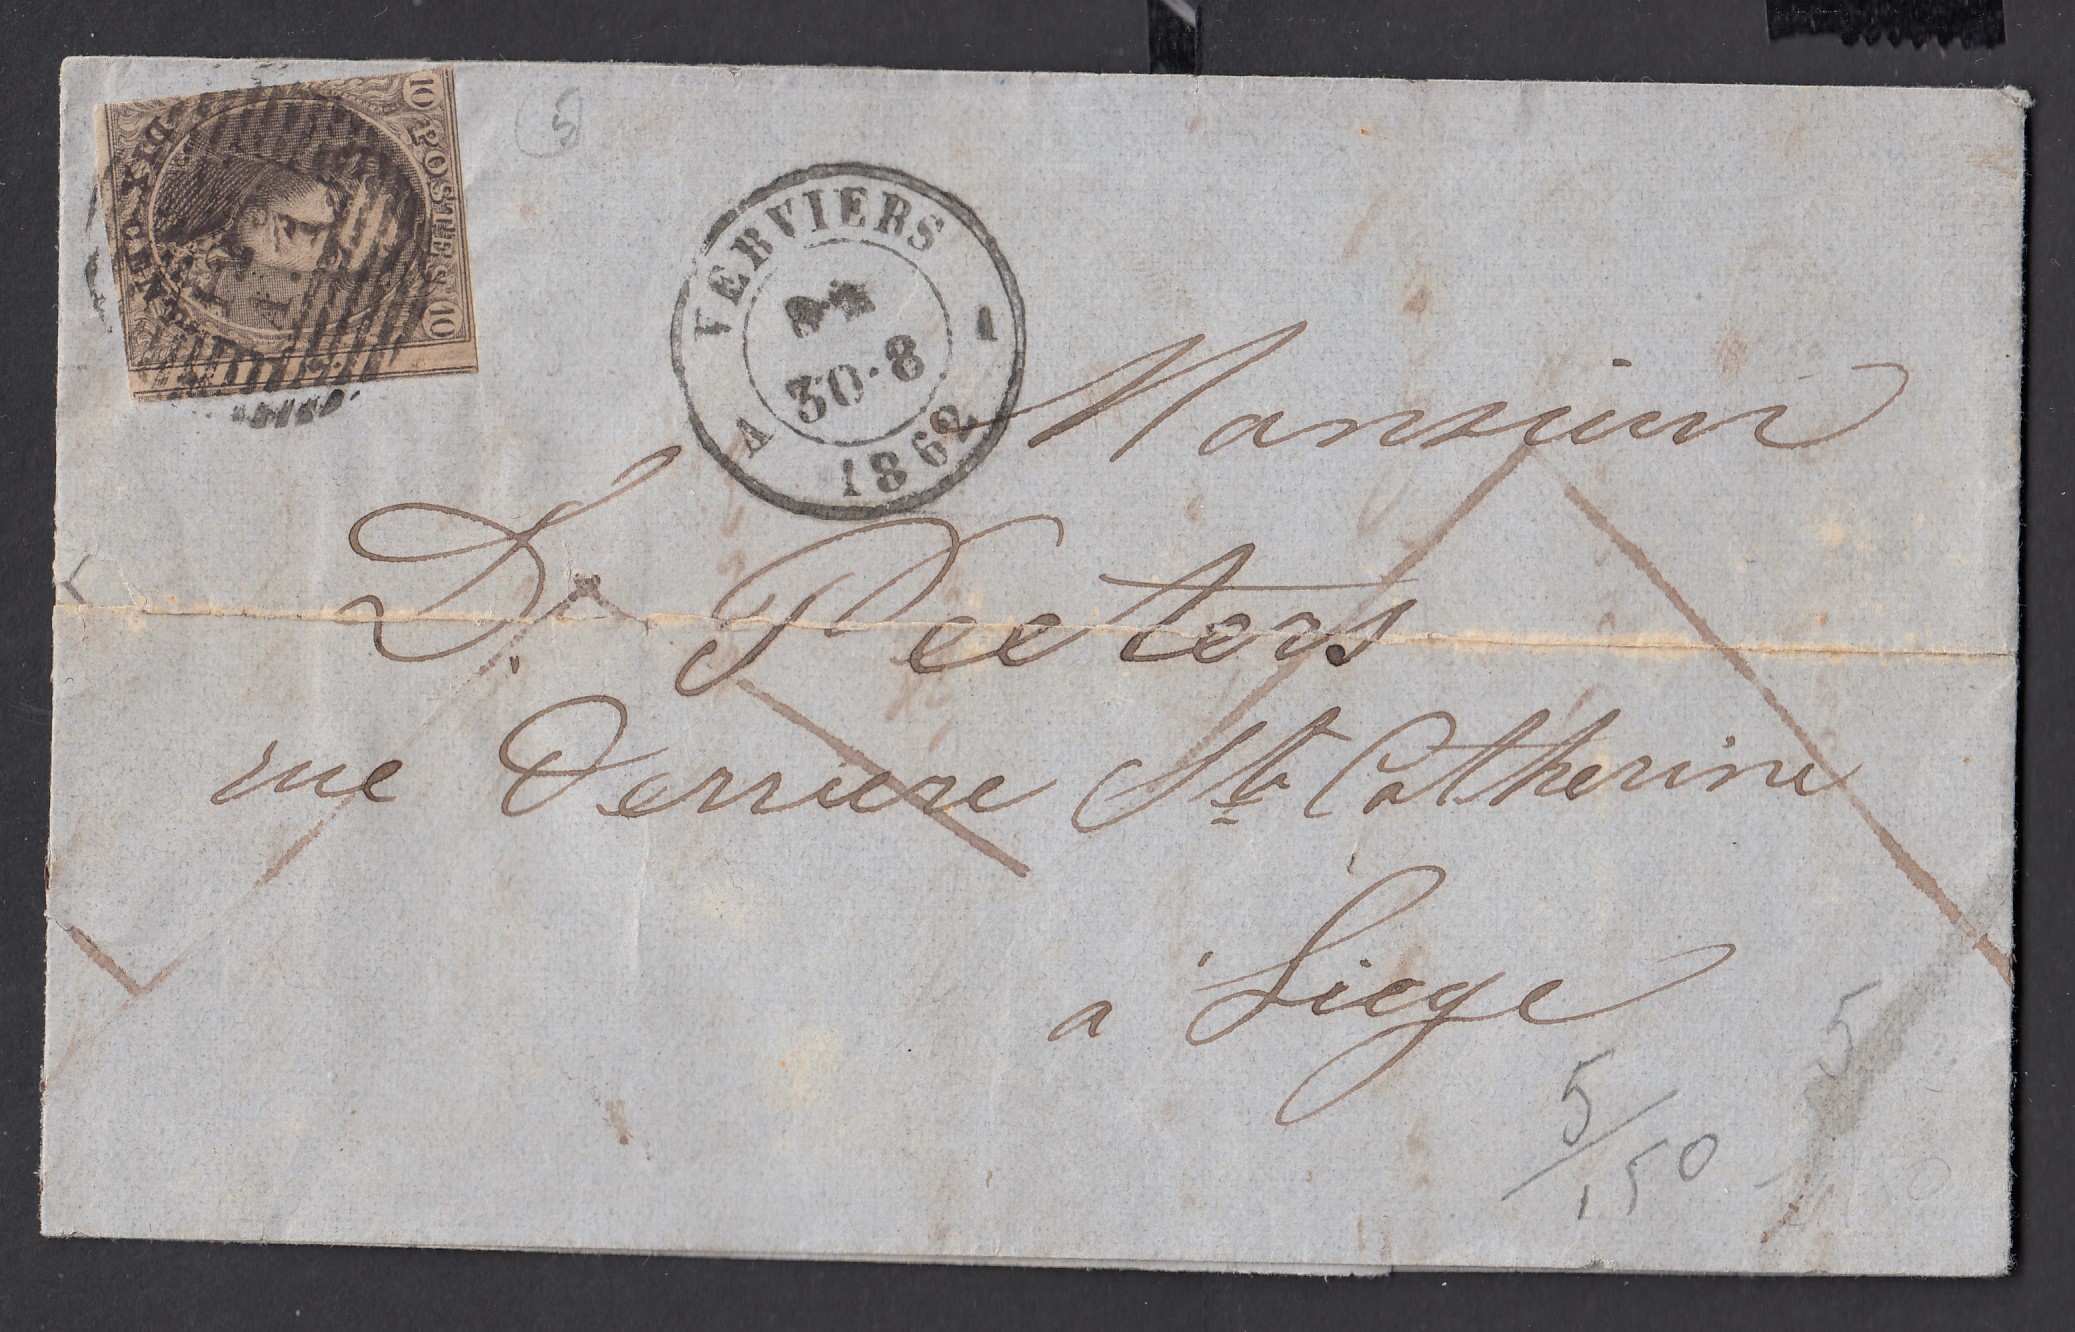 10 POSTES 10
DIX CENT.
5
VERVIERS
30·8
1862
A
1
Monsieur
D. Peeters
rue Derriere Ste Catherine
a Liege
5
5/150